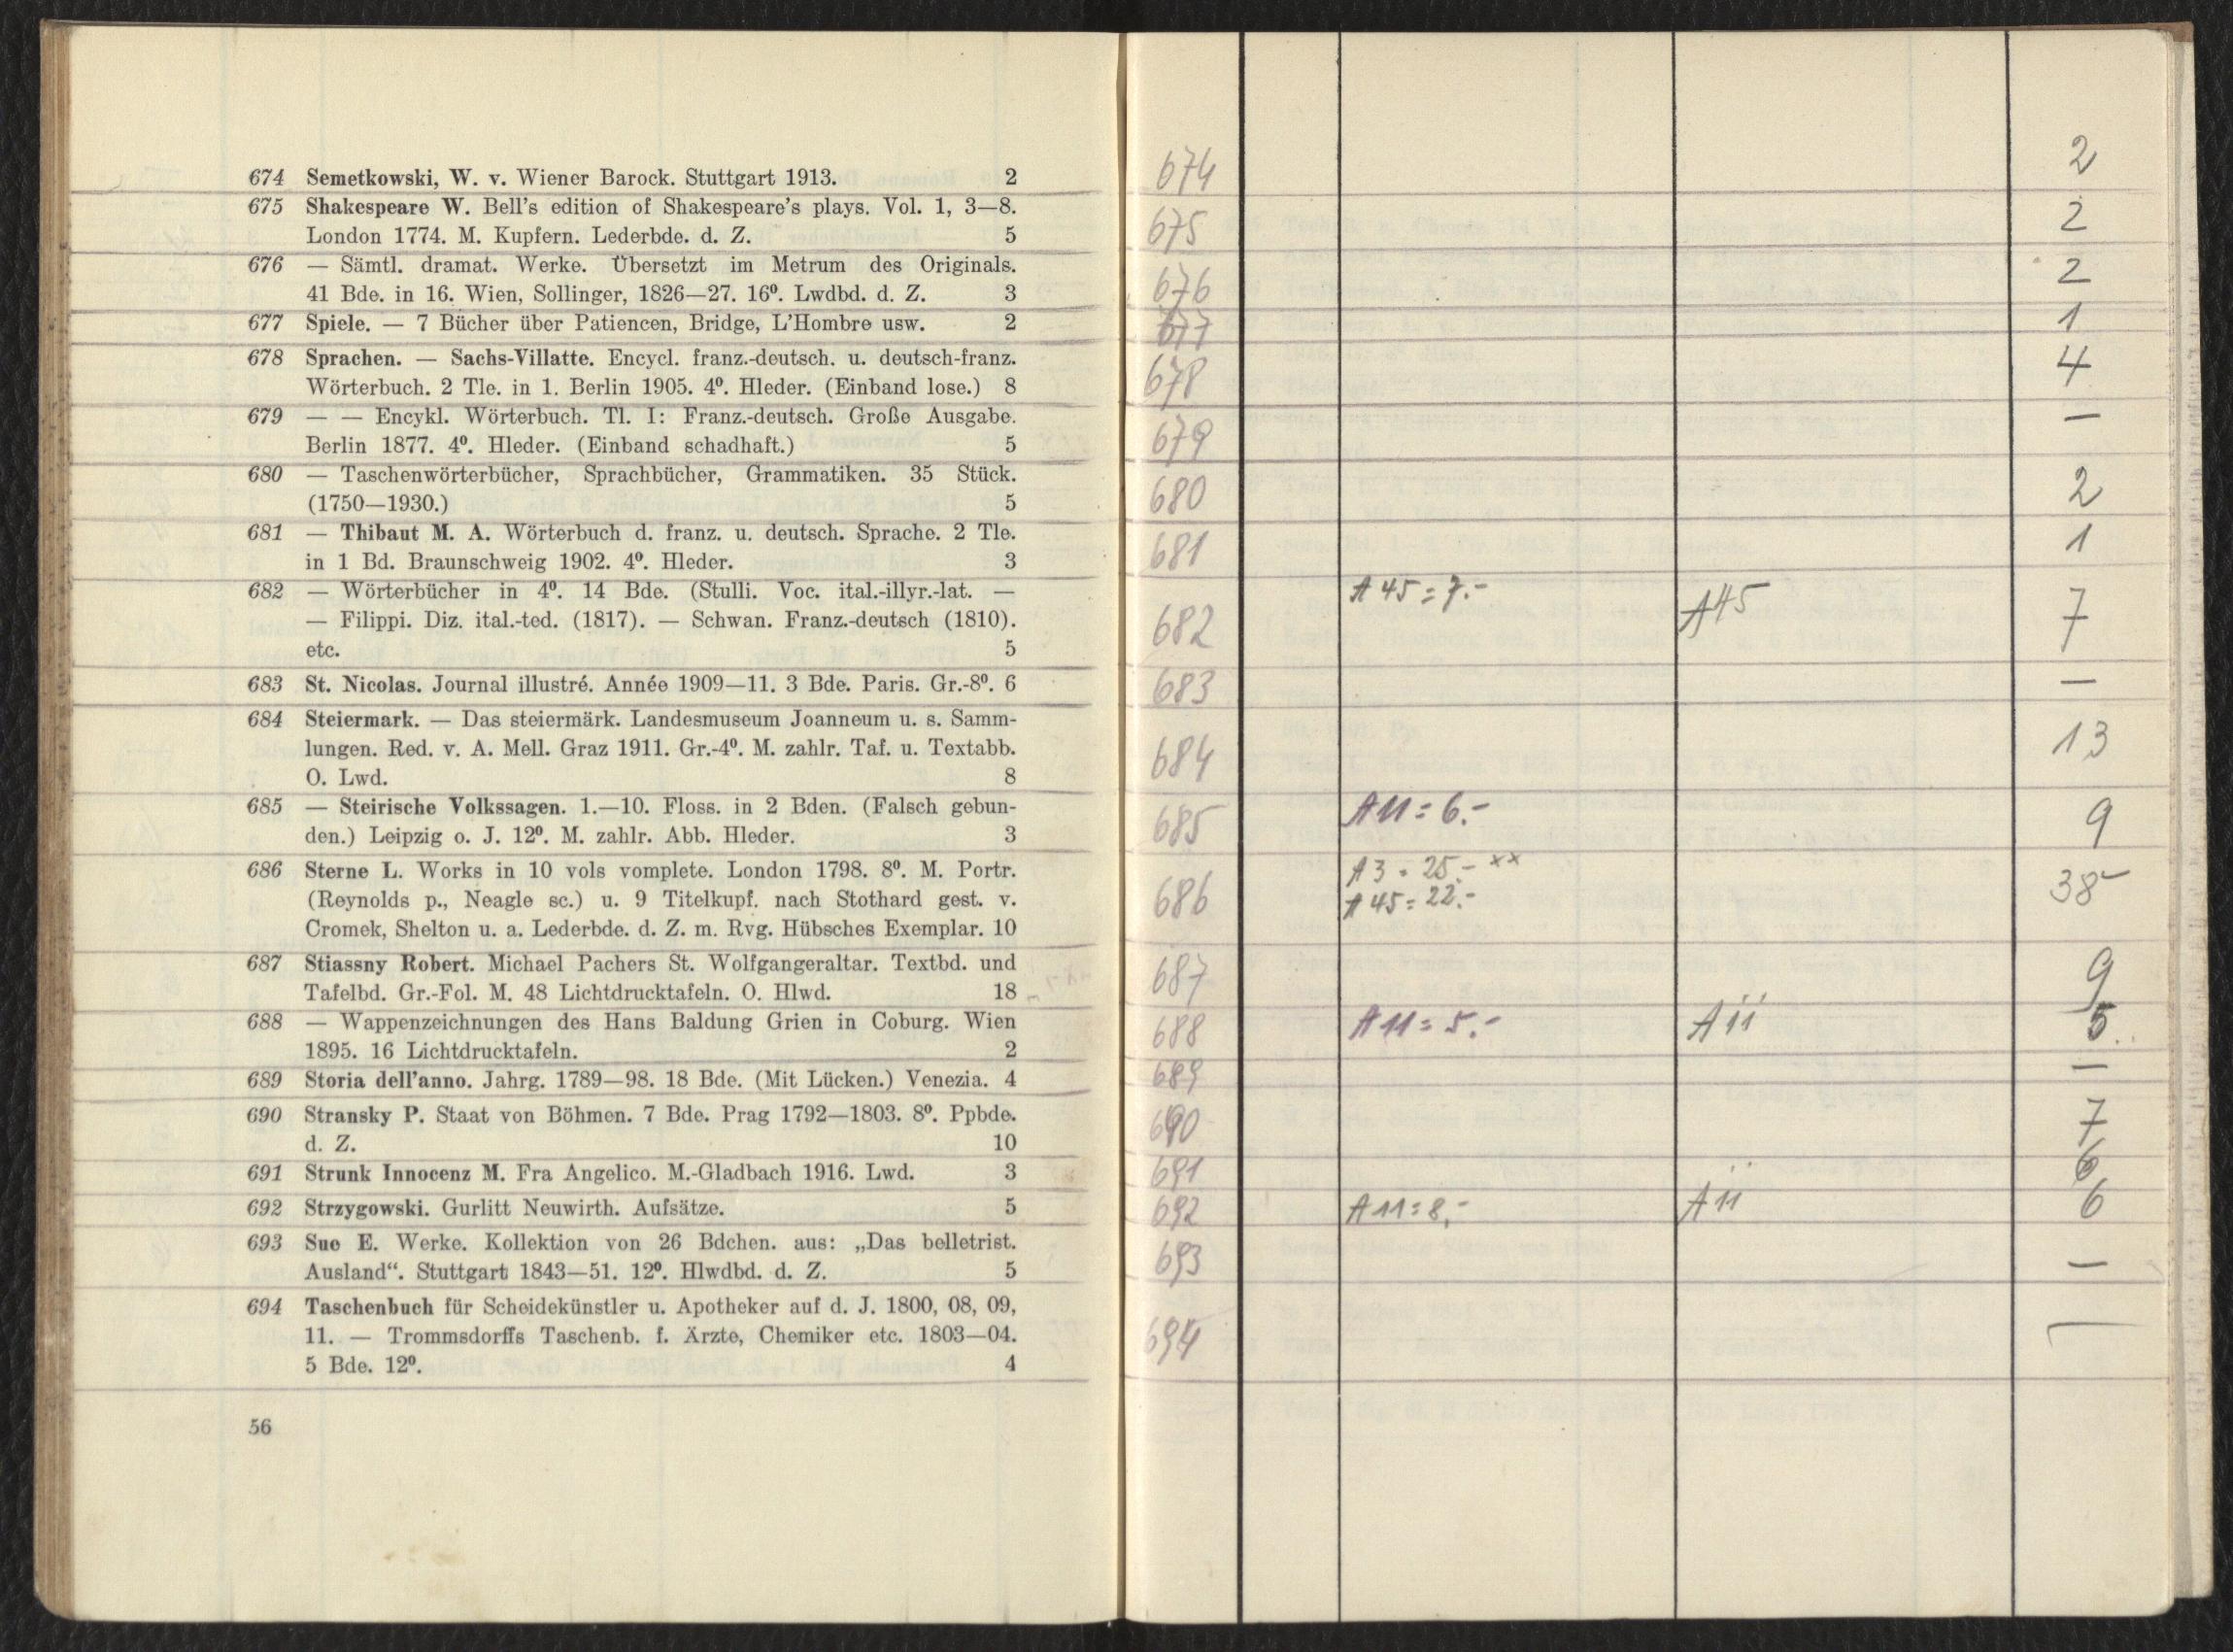 674 Semetkowski, W. v. Wiener Barock. Stuttgart 1913. 2
675 Shakespeare W. Bell's edition of Shakespeare's plays. Vol. 1, 3—8.
London 1774. M. Kupfern. Lederbde. d. Z. 5
676 — Sämtl. dramat. Werke. Übersetzt im Metrum des Originals.
41 Bde. in 16. Wien, Sollinger, 1826—27. 16⁰. Lwdbd. d. Z. 3
677 Spiele. — 7 Bücher über Patiencen, Bridge, L'Hombre usw. 2
678 Sprachen. — Sachs-Villatte. Encycl. franz.-deutsch. u. deutsch-franz.
Wörterbuch. 2 Tle. in 1. Berlin 1905. 4⁰. Hleder. (Einband lose.) 8
679 — — Encykl. Wörterbuch. Tl. I: Franz.-deutsch. Große Ausgabe.
Berlin 1877. 4⁰. Hleder. (Einband schadhaft.) 5
680 — Taschenwörterbücher, Sprachbücher, Grammatiken. 35 Stück.
(1750—1930.) 5
681 — Thibaut M. A. Wörterbuch d. franz. u. deutsch. Sprache. 2 Tle.
in 1 Bd. Braunschweig 1902. 4⁰. Hleder. 3
682 — Wörterbücher in 4⁰. 14 Bde. (Stulli. Voc. ital.-illyr.-lat. —
— Filippi. Diz. ital.-ted. (1817). — Schwan. Franz.-deutsch (1810).
etc. 5
683 St. Nicolas. Journal illustré. Année 1909—11. 3 Bde. Paris. Gr.-8⁰. 6
684 Steiermark. — Das steiermärk. Landesmuseum Joanneum u. s. Samm-
lungen. Red. v. A. Mell. Graz 1911. Gr.-4⁰. M. zahlr. Taf. u. Textabb.
O. Lwd. 8
685 — Steirische Volkssagen. 1.—10. Floss. in 2 Bden. (Falsch gebun-
den.) Leipzig o. J. 12⁰. M. zahlr. Abb. Hleder. 3
686 Sterne L. Works in 10 vols vomplete. London 1798. 8⁰. M. Portr.
(Reynolds p., Neagle sc.) u. 9 Titelkupf. nach Stothard gest. v.
Cromek, Shelton u. a. Lederbde. d. Z. m. Rvg. Hübsches Exemplar. 10
687 Stiassny Robert. Michael Pachers St. Wolfgangeraltar. Textbd. und
Tafelbd. Gr.-Fol. M. 48 Lichtdrucktafeln. O. Hlwd. 18
688 — Wappenzeichnungen des Hans Baldung Grien in Coburg. Wien
1895. 16 Lichtdrucktafeln. 2
689 Storia dell'anno. Jahrg. 1789—98. 18 Bde. (Mit Lücken.) Venezia. 4
690 Stransky P. Staat von Böhmen. 7 Bde. Prag 1792—1803. 8⁰. Ppbde.
d. Z. 10
691 Strunk Innocenz M. Fra Angelico. M.-Gladbach 1916. Lwd. 3
692 Strzygowski. Gurlitt Neuwirth. Aufsätze. 5
693 Sue E. Werke. Kollektion von 26 Bdchen. aus: „Das belletrist.
Ausland“. Stuttgart 1843—51. 12⁰. Hlwdbd. d. Z. 5
694 Taschenbuch für Scheidekünstler u. Apotheker auf d. J. 1800, 08, 09,
11. — Trommsdorffs Taschenb. f. Ärzte, Chemiker etc. 1803—04.
5 Bde. 12⁰. 4
56
674 2
675 2
676 2
677 1
678 4
679 —
680 2
681 1
682 A 45 = 7.- A45 7
683 —
684 13
685 A 11 = 6.- 9
686 A 3 = 25.- xx
A 45 = 22.- 38
687 9
688 A 11 = 5.- A 11 5
689 —
690 7
691 6
692 A 11 = 8.- A 11 6
693 —
694 —